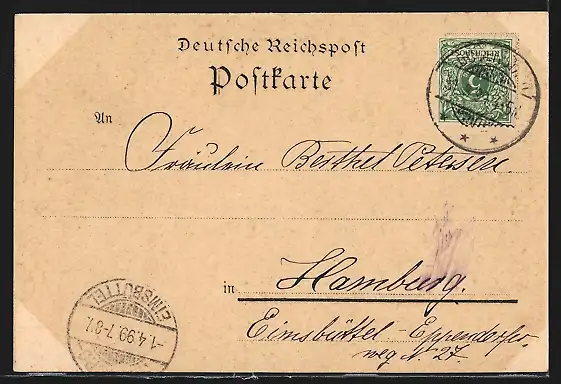 Deutsche Reichspost
Postkarte
REICHSPOST
5
An
Fräulein Berthel Petersen.
in Hamburg.
Eimsbüttel-Eppendorfer-
weg No 27.
EIMSBÜTTEL
1.4.99.7-8V.